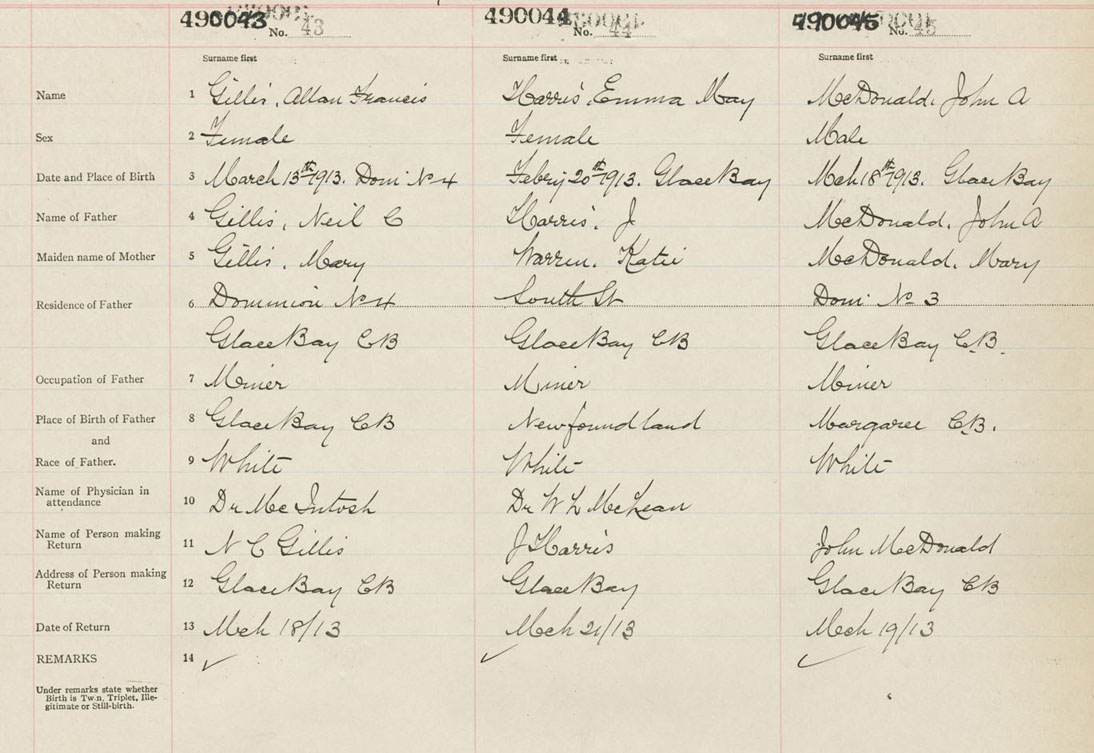 490043 490044 490045
No. 43 No. 44 No. 45
Surname first Surname first Surname first
Name 1 Gillis, Allan Francis Harris, Emma May McDonald, John A
Sex 2 Female Female Male
Date and Place of Birth 3 March 13th 1913. Dom. No 4 Febry 20th 1913. Glace Bay Mch 18th 1913. Glace Bay
Name of Father 4 Gillis, Neil C Harris, J McDonald, John A
Maiden name of Mother 5 Gillis, Mary Warren, Katie McDonald, Mary
Residence of Father 6 Dominion No 4 South St Dom. No 3
Glace Bay CB Glace Bay CB Glace Bay C.B.
Occupation of Father 7 Miner Miner Miner
Place of Birth of Father 8 Glace Bay CB Newfoundland Margaree C.B.
and
Race of Father. 9 White White White
Name of Physician in
attendance 10 Dr McIntosh Dr W L McLean
Name of Person making
Return 11 N C Gillis J Harris John McDonald
Address of Person making
Return 12 Glace Bay CB Glace Bay Glace Bay CB
Date of Return 13 Mch 18/13 Mch 21/13 Mch 19/13
REMARKS 14 ✓ ✓ ✓
Under remarks state whether
Birth is Twin, Triplet, Ille-
gitimate or Still-birth.